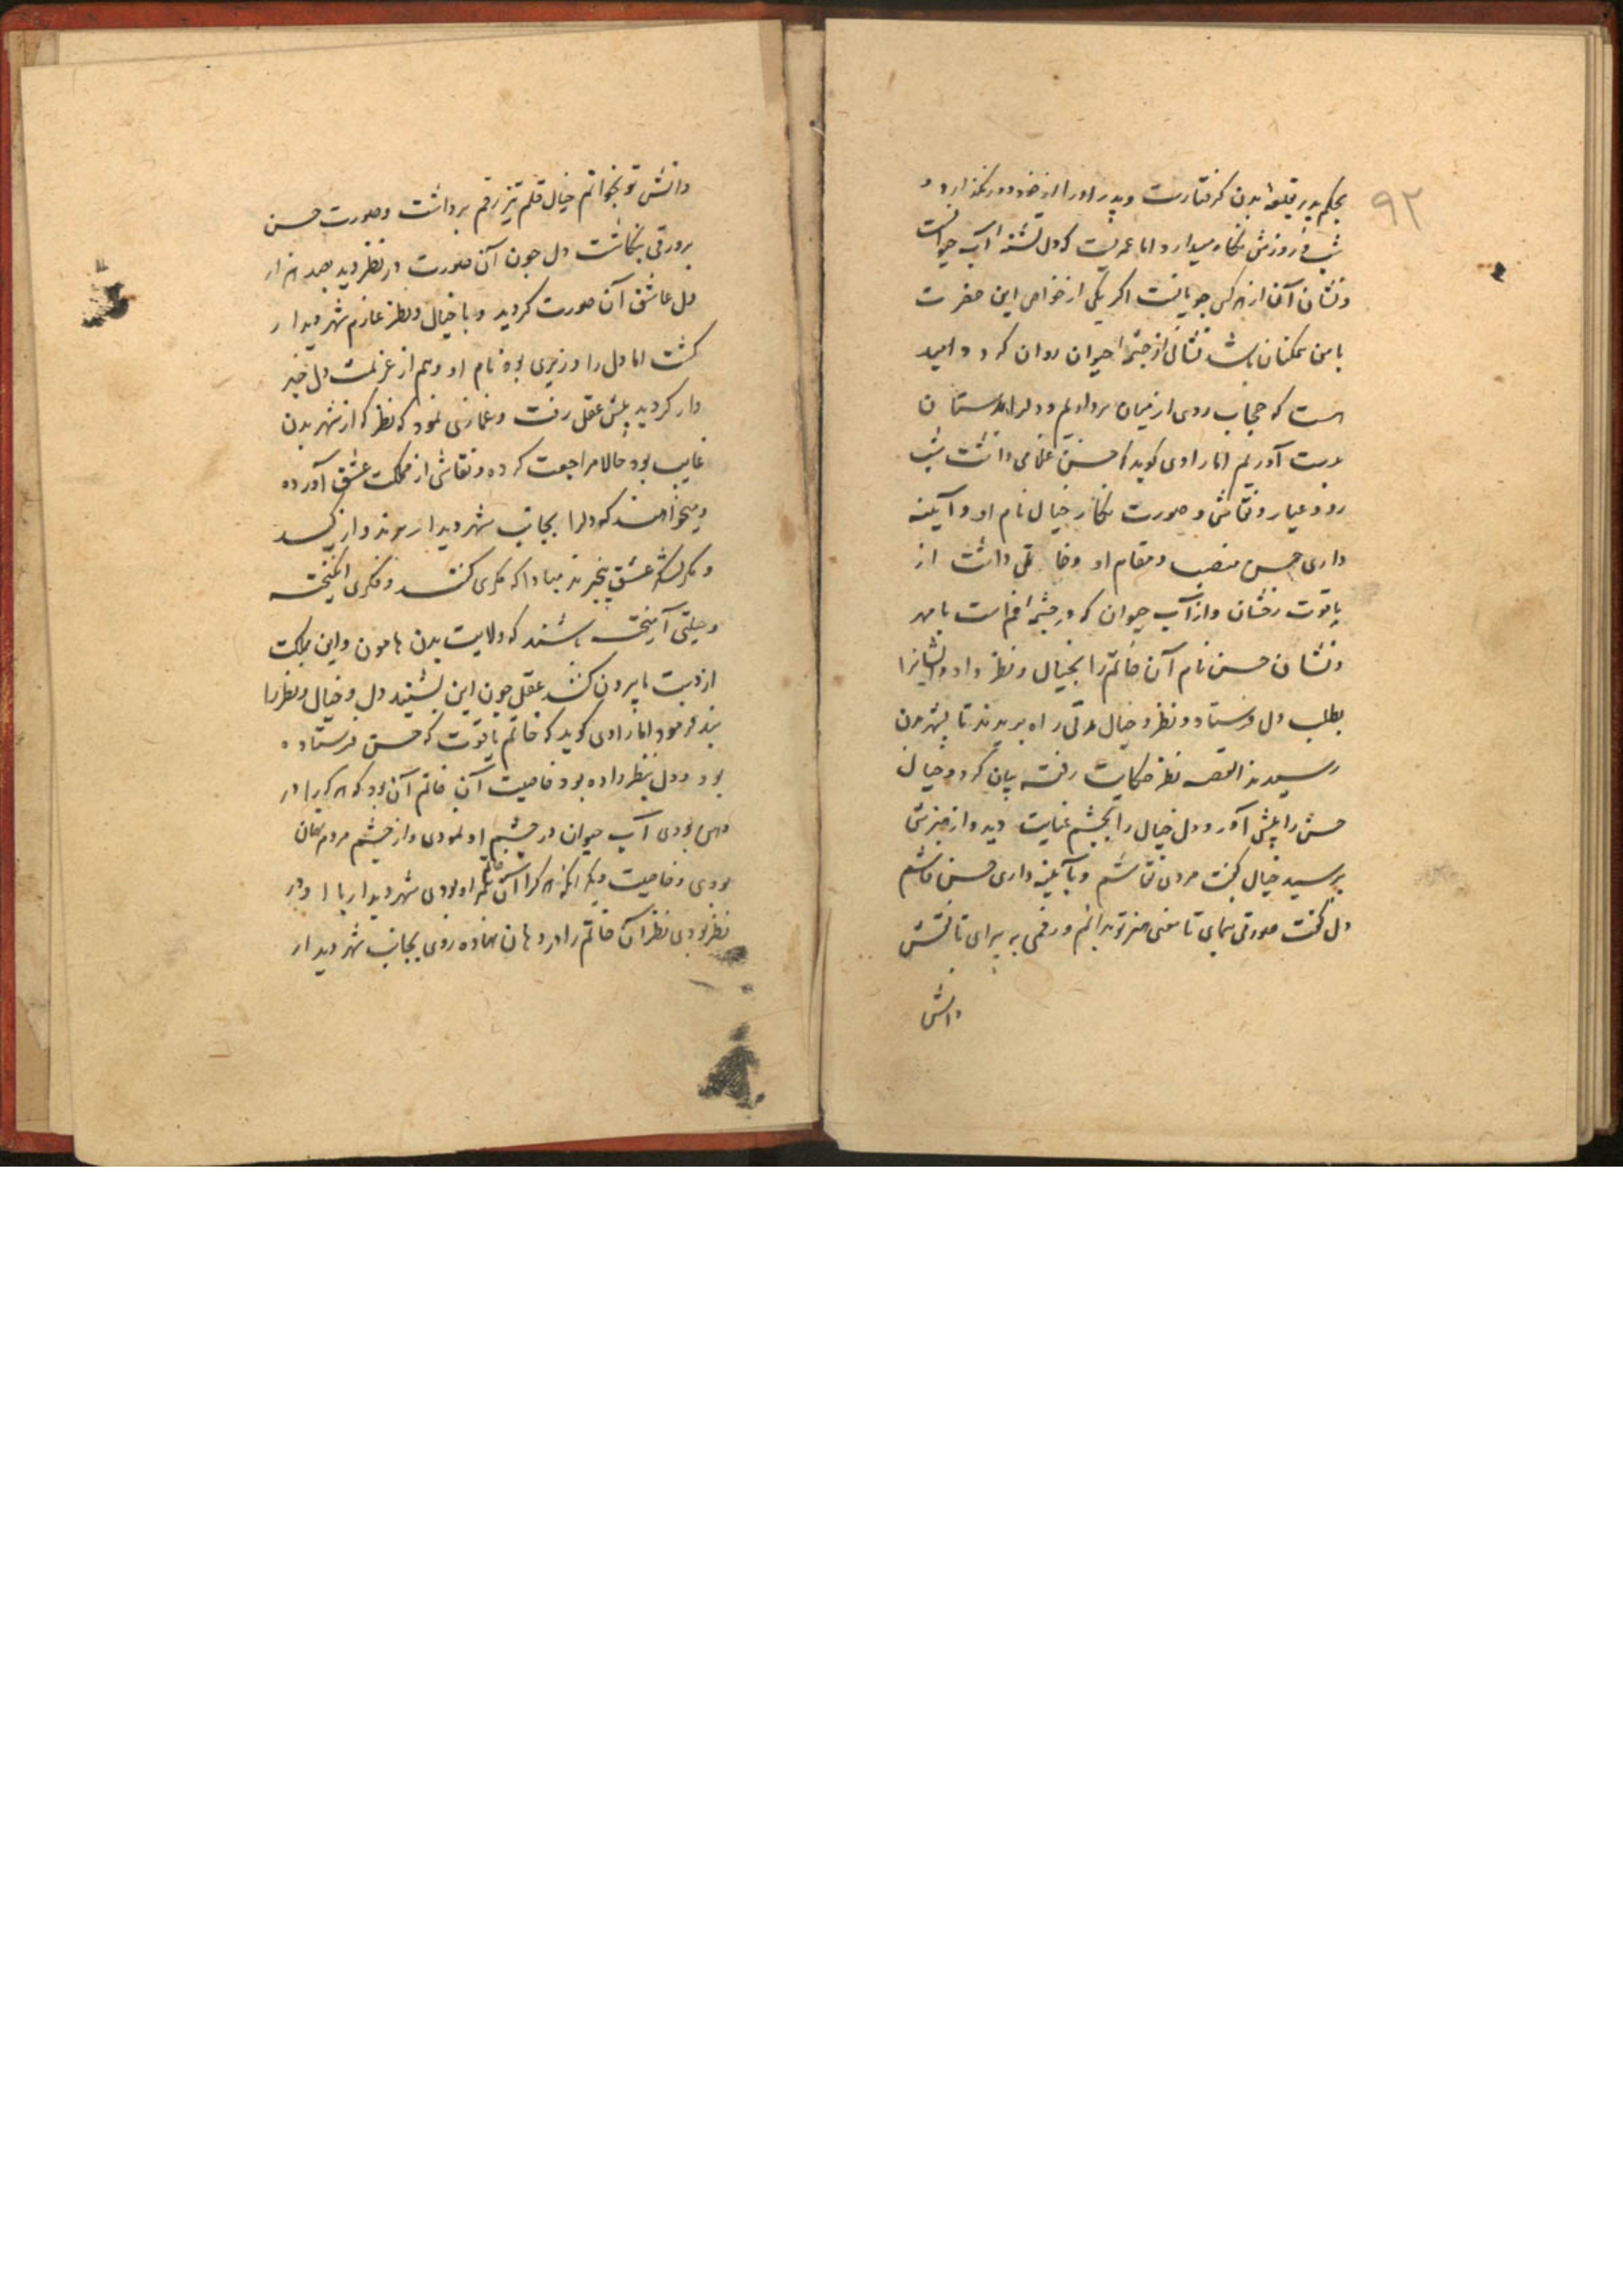 ۹۲
بحکم پدر بقلعهٔ بدن کرفتارست و پدر او را از خود دور نمیکذارد و
شب و روزش نکاه میدارد اما عمریست که دل تشنهٔ آب حیوانست
و نشان آن از هر کس جویانست اکر یکی از خواص این حضرت
با من همکنان باشد تشنهٔ از چشمهٔ حیوان روان کردد امید
هست که حجاب روی از میان برداریم و دلرا بدستان
بدست آوریم اما راوی کوید که حسن غلامی داشت شب
رو و عیار و نقاش و صورت نکار خیال نام او و آینه
داری حسن منصب و مقام او و خاتمی داشت از
یاقوت رخشان و از آب حیوان که در چشمهٔ فم است با مهر
و نشان حسن نام آن خاتم را بخیال و نظر داد و ایشانرا
بطلب دل فرستاد و نظر و خیال مدتی راه بریدند تا بشهر بدن
رسیدند القصه نظر حکایت رفته بیان کرد و خیال
حسن را پیش آورد و دل خیال را بچشم عنایت دید و از هنرش
پرسید خیال کفت مردی نقاشم و بآینه داری حسن فاشم
دل کفت صورتی بنمای تا معنی هنر تو بدانم و رقمی بر سرای تا نقش
دانش
دانش تو بخوانم خیال قلم تیز رقم برداشت و صورت حسن
بر ورقی بنکاشت دل چون آن صورت در نظر دید بصد هزار
دل عاشق آن صورت کردید و با خیال و نظر عازم شهر دیدار
کشت اما دل را وزیری بود نام او وهم از عزیمت دل خبر
دار کردید پیش عقل رفت و غمازی نمود که نظر که از شهر بدن
غایب بود حالا مراجعت کرده و نقاشی از مملکت عشق آورده
و میخواهند که دلرا بجانب شهر دیدار برند و از کید
و مکر لشکر عشق بیخبرند مبادا که مکری کنند و فکری انکیخته
و حیلتی آمیخته باشند که ولایت بدن هامون و این مملکت
از دست ما بیرون کنند عقل چون این بشنید دل و خیال و نظر را
بند فرمود اما راوی کوید که خاتم یاقوت که حسن فرستاده
بود و دل بنظر داده بود خاصیت آن خاتم آن بود که هر کرا در
دهن بودی آب حیوان در چشم او نمودی و از چشم مردم نهان
بودی و خاصیت دیکر آنکه هر کرا آن خاتم همراه بودی شهر دیدار با او در
نظر بودی نظر آن خاتم را در دهان نهاده روی بجانب شهر دیدار